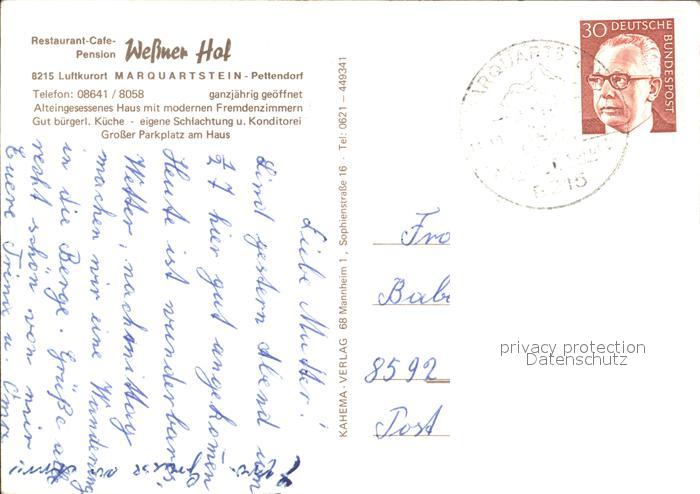 Restaurant-Cafe-
Pension Weßner Hof
8215 Luftkurort MARQUARTSTEIN - Pettendorf
Telefon: 08641 / 8058 ganzjährig geöffnet
Alteingesessenes Haus mit modernen Fremdenzimmern
Gut bürgerl. Küche - eigene Schlachtung u. Konditorei
Großer Parkplatz am Haus
Liebe Mutter!
Sind gestern Abend um
½ 7 hier gut angekomen
Heute ist wunderbares
Wetter, nachmittag
machen wir eine Wanderung
in die Berge. Grüße alle
recht schön von mir
Euere u. Oma
KAHEMA-VERLAG 68 Mannheim 1, Sophienstraße 16 - Tel: 0621 - 449341
30 DEUTSCHE
BUNDESPOST
MARQUARTST
8215
Fra
Bab
8592
Post
privacy protection
Datenschutz